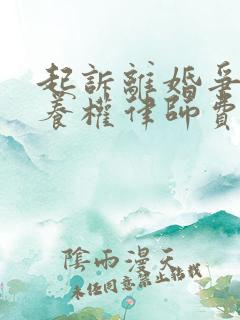 起訴離婚爭
養權律師費
陰雨漫天
未經同意禁止轉載